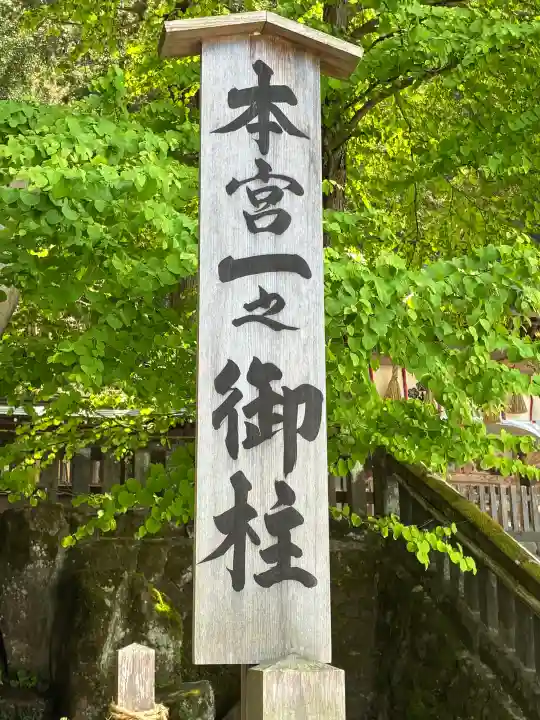 本宮一之御柱